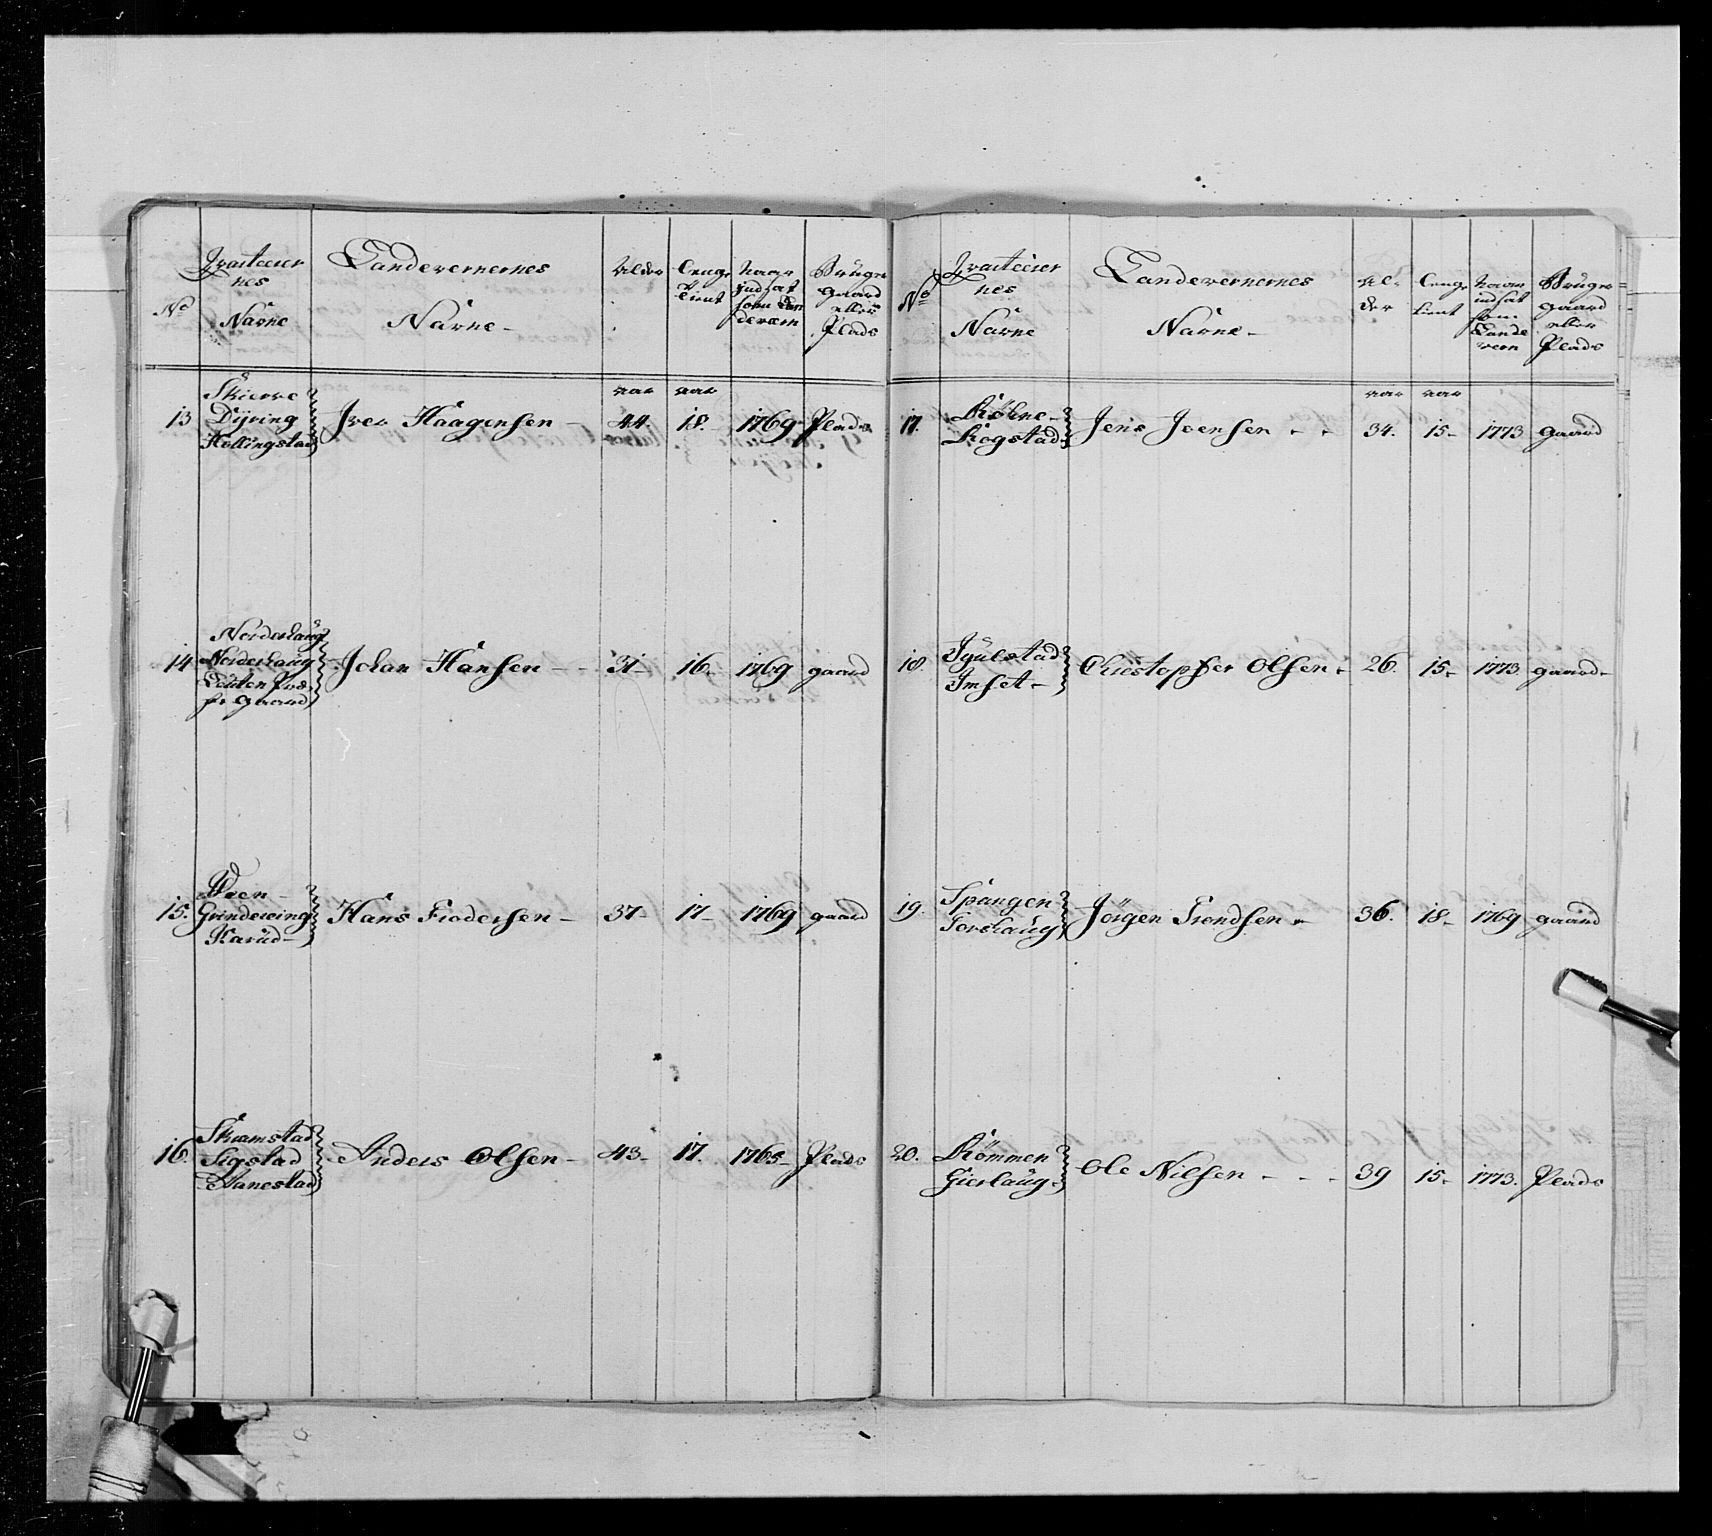 No
Qvarteerer
nes
Navne
Landevernernes
Navne-
Alder
Længe
tient
Naar
Indsat
som Lan
deværn
Bruger
gaard
eller
Plads
13 Skierve Dyring Hollingstad Iver Haagensen - aar 44. aar 18. 1769 Plads
14 Norderhaug Norderhaug Leuten Præ- ste gaard Johan Hansen - - 31- 16. 1769 gaard
15. Hoen- Grindereing Karud- Hans Frodersen - 37- 17- 1769 gaard
16. Skramstad Sigstad Aanestad Anders Olsen - 43- 17. 1765- Plads
No
Qvarteerer
nes
Navne
Landevernernes
Navne-
Al-
der
Længe
tient
Naar
indsat
som
Lande
vern
Bruger
gaard
eller
Plads
17. Røhne- Rogstad Jens Joensen - - aar 34. aar 15- 1773 gaard
18 Jyulstad Imset- Christopher Olsen - 26. 15- 1773 gaard-
19. Spangen Torshaug Jörgen Trondsen - 36. 18- 1769 gaard
20. Rømmen Gierlaug Ole Nilsen - - - 39 15- 1773. Plads